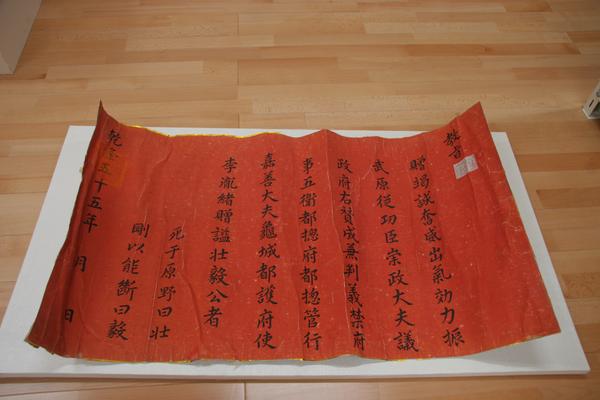 教旨
贈竭誠奮威出氣効力振
武原從功臣崇政大夫議
政府右贊成兼判義禁府
事五衛都摠府都摠管行
嘉善大夫龜城都護府使
李瀧緖贈諡壯毅公者
死于原野曰壯
剛以能斷曰毅
乾隆五十五年 月 日